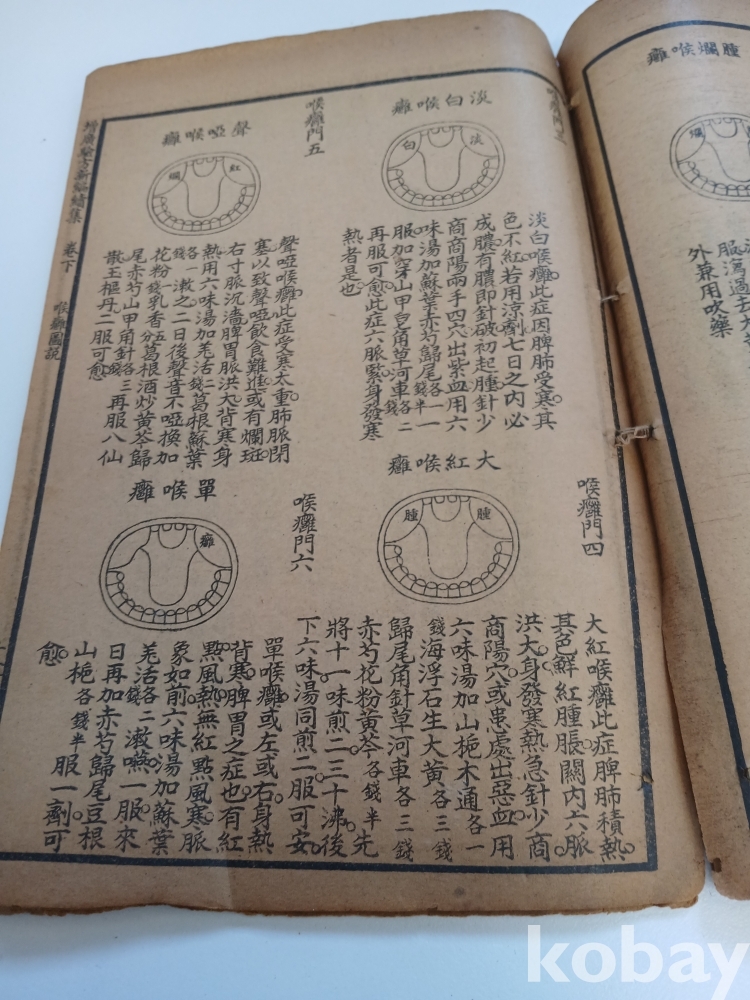 喉癰門三
淡白喉癰
淡
白
淡白喉癰此症因脾肺受寒其
色不紅若用涼劑七日之內必
成膿有膿即針破初起腫針少
商商陽兩手四穴出紫血用六
味湯加蘇葉赤芍歸尾各一錢半一
服加穿山甲皂角草河車各二錢
再服可愈此症六脈緊身發寒
熱者是也
喉癰門五
聲啞喉癰
紅
爛
聲啞喉癰此症受寒太重肺脈閉
塞以致聲啞飲食難進或有爛斑
右寸脈沉濇脾胃脈洪大背寒身
熱用六味湯加羌活二錢葛根蘇葉
各一錢漱之二日後聲音不啞換加
花粉錢乳香五分葛根酒炒黃芩歸
尾赤芍山甲角針各三錢再服八仙
散玉樞丹二服可愈
喉癰門四
大紅喉癰
腫
腫
大紅喉癰此症脾肺積熱
其色鮮紅腫脹關內六脈
洪大身發寒熱急針少商
商陽穴或患處出惡血用
六味湯加山梔木通各一
錢海浮石生大黃各三錢
歸尾角針草河車各三錢
赤芍花粉黃芩各錢半先
將十一味煎二三十沸後
下六味湯同煎二服可安
喉癰門六
單喉癰
癰
單喉癰或左或右身熱
背寒脾胃之症也有紅
點風熱無紅點風寒脈
象如前六味湯加蘇葉
羌活各二錢漱嚥一服來
日再加赤芍歸尾豆根
山梔各錢半服一劑可
愈
增廣驗方新編續集 卷下 喉癰圖說
腫爛喉癰
爛
服瀉
外兼用吹藥
kobay